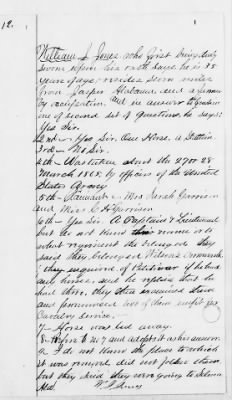 12.
William S. Jones who first being duly
sworn upon his oath says he is 35
years of age, resides seven miles
from Jasper Alabama and a farmer
by occupation. and in answer to question
one of second set of questions he says:
Yes Sir.
2nd - Yes Sir. One Horse, a Stallion
3rd - No Sir.
4th - Was taken about the 27 or 28
March 1865 by officers of the United
States Army
5th - Claimant - Miss Sarah Garrison
and Miss C. H Garrison
6th - Yes Sir A Captain & Lieutenant
but he dont know names or to
what regiment they belonged. They
said they belonged Wilsons Command
they inquired of Petitioner if he had
any horses and he replied that he
had three, they then examined stud
and pronounced one of them outfit for
Cavalry service.
7 - Horse was led away.
8 - Refer to No 7 and adopts it as his answer.
9 - I do not know the place to which
it was moved did not follow them
but they said they were going to Selma
Ala.
W. S. Jones